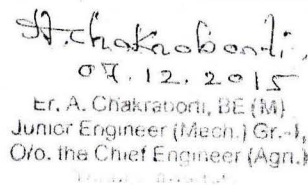 A. Chakraborti.
07.12.2015
Er. A. Chakraborti, BE (M)
Junior Engineer (Mech.) Gr.-I,
O/o. the Chief Engineer (Agri.)